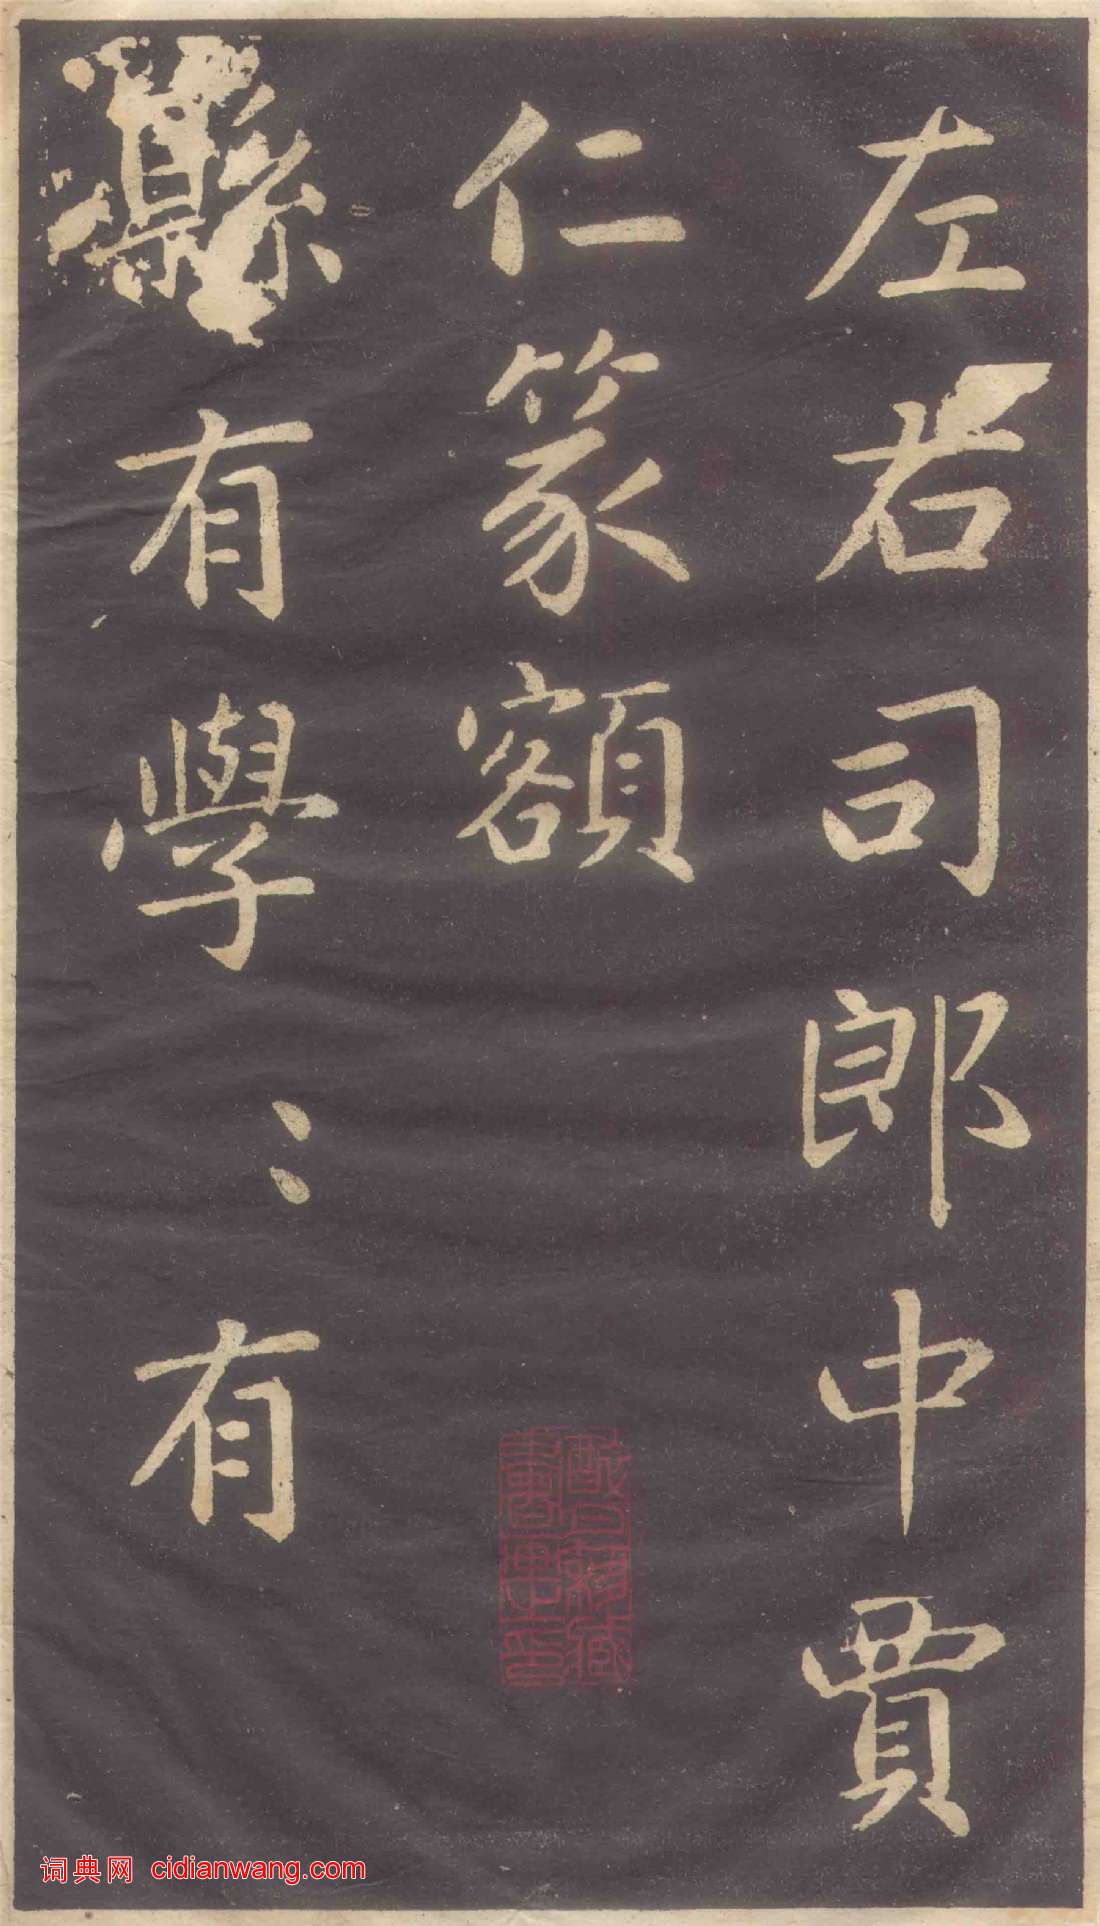 左右司郎中賈
仁篆額
縣有學〻有
词典网 cidianwang.com